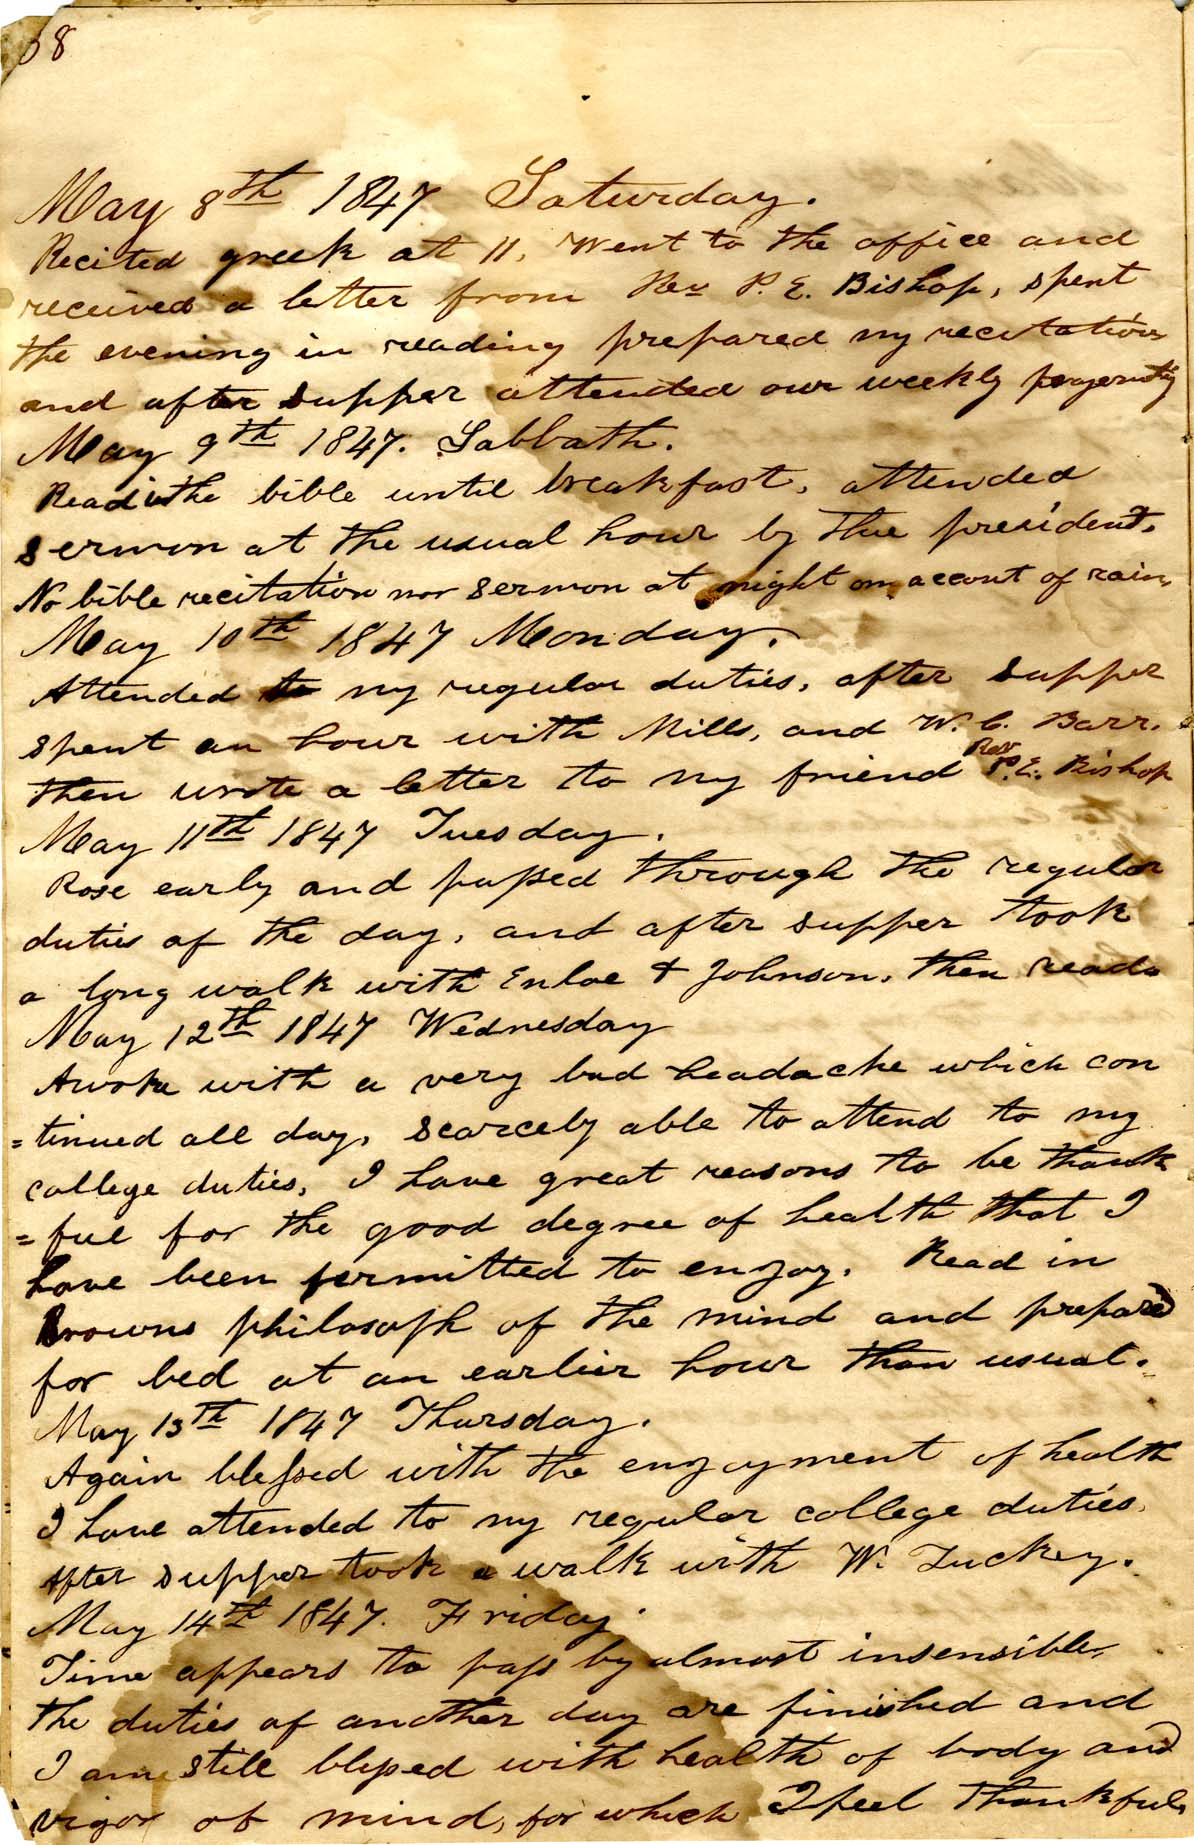 38
May 8th 1847 Saturday.
Recited greek at 11, Went to the office and
received a letter from Rev P. E. Bishop, spent
the evening in reading prepared my recitation
and after supper attended our weekly
May 9th 1847. Sabbath.
Read in the bible until breakfast, attended
sermon at the usual hour by the president.
No bible recitation nor sermon at night on account of rain,
May 10th 1847 Monday.
Attended to my regular duties, after supper
spent an hour with Mills, and W. C. Barr.
then wrote a letter to my friend Rev P. E. Bishop
May 11th 1847 Tuesday.
Rose early and passed through the regular
duties of the day, and after supper took
a long walk with Enloe & Johnson, then read
May 12th 1847 Wednesday
Awoke with a very bad headache which con
=tinued all day, scarcely able to attend to my
college duties, I have great reasons to be thank
=ful for the good degree of health that I
have been permitted to enjoy. Read in
Browns philosoph of the mind and prepared
for bed at an earlier hour than usual.
May 13th 1847 Thursday.
Again blessed with the enjoyment of health
I have attended to my regular college duties,
After supper took a walk with W. Luckey.
May 14th 1847. Friday.
Time appears to pass by almost insensible,
the duties of another day are finished and
I am still blessed with health of body and
vigor of mind, for which I feel thankful,